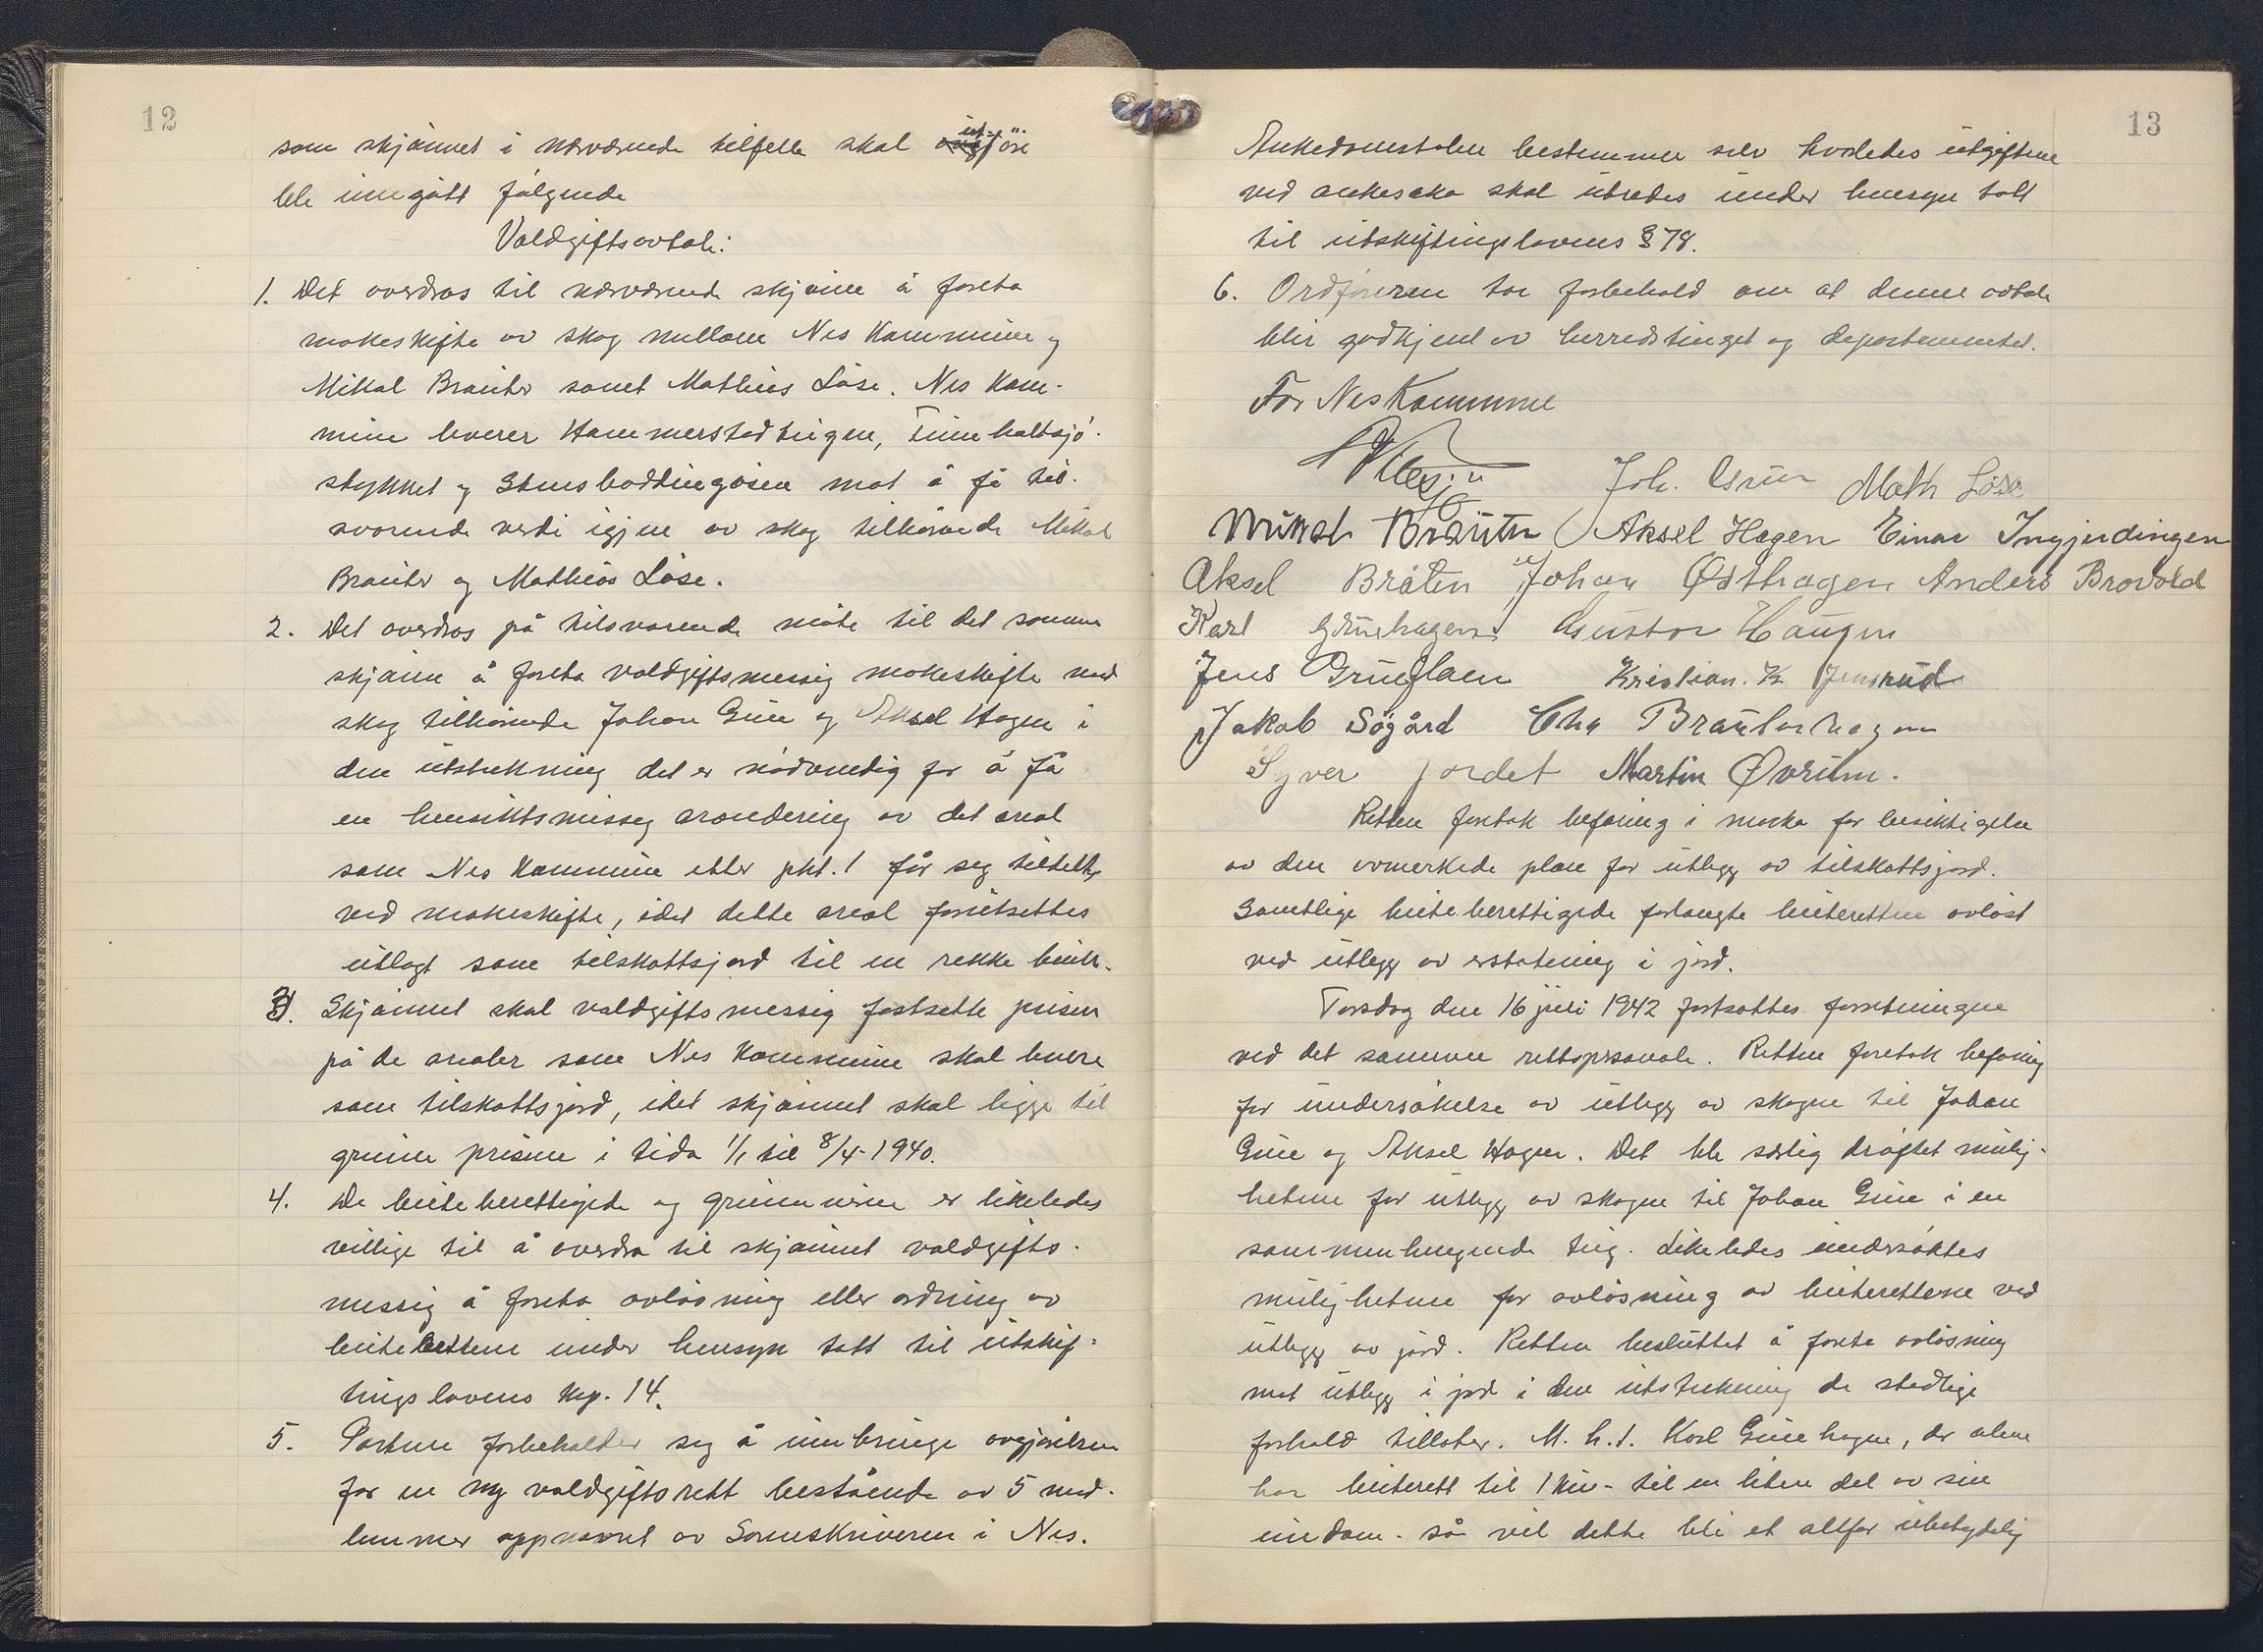 12
som skjønnet i nærværende tilfelle skal utgjøre
ble inngått følgende
Voldgiftsavtale:
1. Det overdras til nærværende skjønn å foreta
makeskifte av skog mellom Nes Kommune og
Mikal Brauter samt Mathias Løse. Nes Kom-
mune leverer Hammerstadteigen, Tunnhaltsjø-
stykket og Stensboddingåsen mot å få til-
svarende verdi igjen av skog tilhørende Mikal
Brauter og Mathias Løse.
2. Det overdras på tilsvarende måte til det samme
skjønn å foreta voldgiftsmessig makeskifte med
skog tilhørende Johan Grue og Aksel Hagen i
den utstrekning det er nødvendig for å få
en hensiktsmessig arondering av det areal
som Nes Kommune etter pkt. 1 får seg tildelt
ved makeskifte, idet dette areal forutsettes
utlagt som tilskottsjord til en rekke bruk.
3. Skjønnet skal voldgiftsmessig fastsette prisen
på de arealer som Nes Kommune skal levere
som tilskottsjord, idet skjønnet skal legge til
grunn prisene i tida 1/1 til 8/4-1940.
4. De beiteberettigede og grunneierne er likeledes
villige til å overdra til skjønnet voldgifts-
messig å foreta avløsning eller ordning av
beiteretten under hensyn tatt til utskif-
tingslovens kap. 14.
5. Partene forbeholder seg å innbringe avgjørelsen
for en ny voldgiftsrett bestående av 5 med-
lemmer oppnevnt av Sorenskriveren i Nes.
13
Ankedomstolen bestemmer selv hvorledes utgiftene
ved ankesaka skal utredes under hensyn tatt
til utskiftingslovens § 78.
6. Ordføreren tar forbehold om at denne avtale
blir godkjent av herredstinget og departementet.
For Nes Kommune
Joh. Grue Math Løse
Mikal Brauter Aksel Hagen Einar Ingjerdingen
Aksel Bråten Johan Østhagen Anders Brovold
Karl Gruehagen Gustav Haugen
Jens Grueflaen Kristian. K Jensrud
Jakob Søgård Chr Brauterhagen
Syver jordet Martin Øvrum.
Retten foretok befaring i marka for besiktigelse
av den avmerkede plan for utlegg av tilskottsjord.
Samtlige beiteberettigede forlangte beiteretten avløst
ved utlegg av erstatning i jord.
Torsdag den 16 juli 1942 fortsattes forretningen
ved det samme rettspersonale. Retten foretok befaring
for undersøkelse av utlegg av skogen til Johan
Grue og Aksel Hagen. Det ble særlig drøftet mulig-
hetene for utlegg av skogen til Johan Grue i en
sammenhengende teig. Likeledes undersøktes
mulighetene for avløsning av beiterettene ved
utlegg av jord. Retten besluttet å foreta avløsning
mot utlegg i jord i den utstrekning de stedlige
forhold tillater. M. h. t. Karl Gruehagen, der alene
har beiterett til 1 ku - til en liten del av sin
eiendom - så vil dette bli et altfor ubetydelig